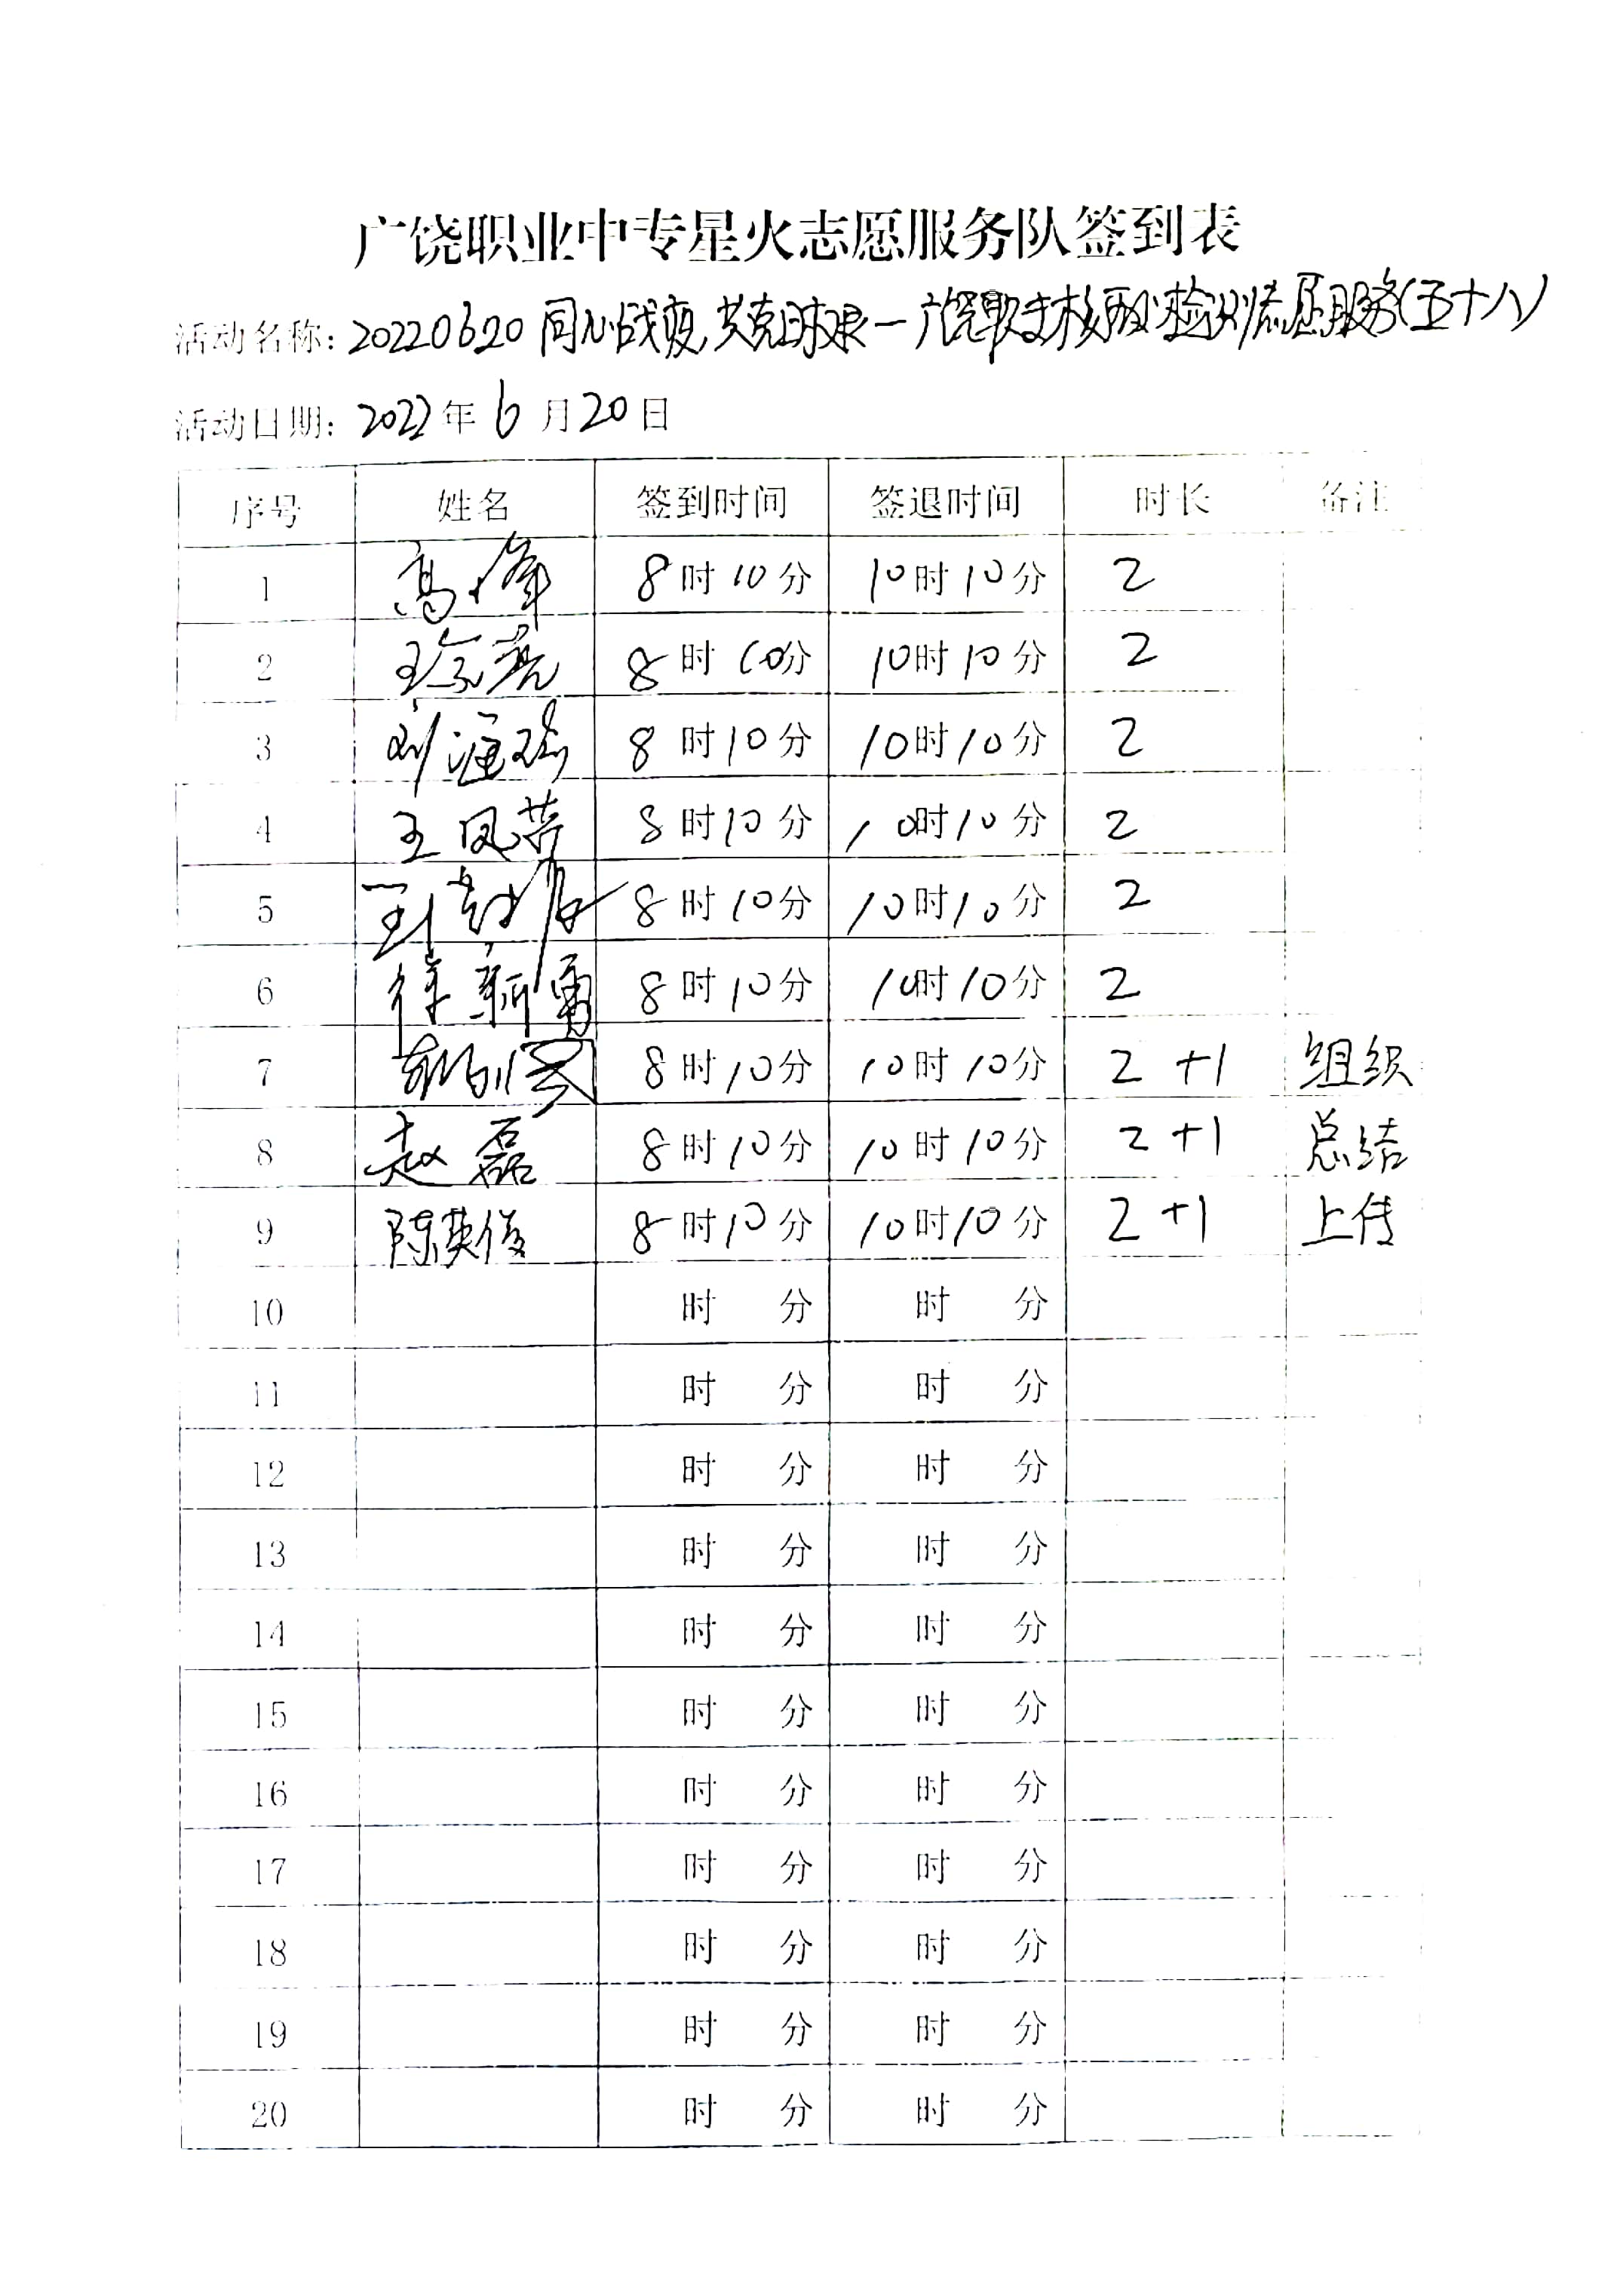 广饶职业中专星火志愿服务队签到表
活动名称: 20220620 同心战疫,共克时艰—广饶职专核酸检测志愿服务(五十八)
活动日期: 2022年 6 月 20 日
序号 姓名 签到时间 签退时间 时长 备注
1 高峰 8时10分 10时10分 2
2 8时10分 10时10分 2
3 刘 8时10分 10时10分 2
4 王凤芹 8时10分 10时10分 2
5 8时10分 10时10分 2
6 徐新勇 8时10分 10时10分 2
7 8时10分 10时10分 2+1 组织
8 赵磊 8时10分 10时10分 2+1 总结
9 陈英俊 8时10分 10时10分 2+1 上传
10 时 分 时 分
11 时 分 时 分
12 时 分 时 分
13 时 分 时 分
14 时 分 时 分
15 时 分 时 分
16 时 分 时 分
17 时 分 时 分
18 时 分 时 分
19 时 分 时 分
20 时 分 时 分